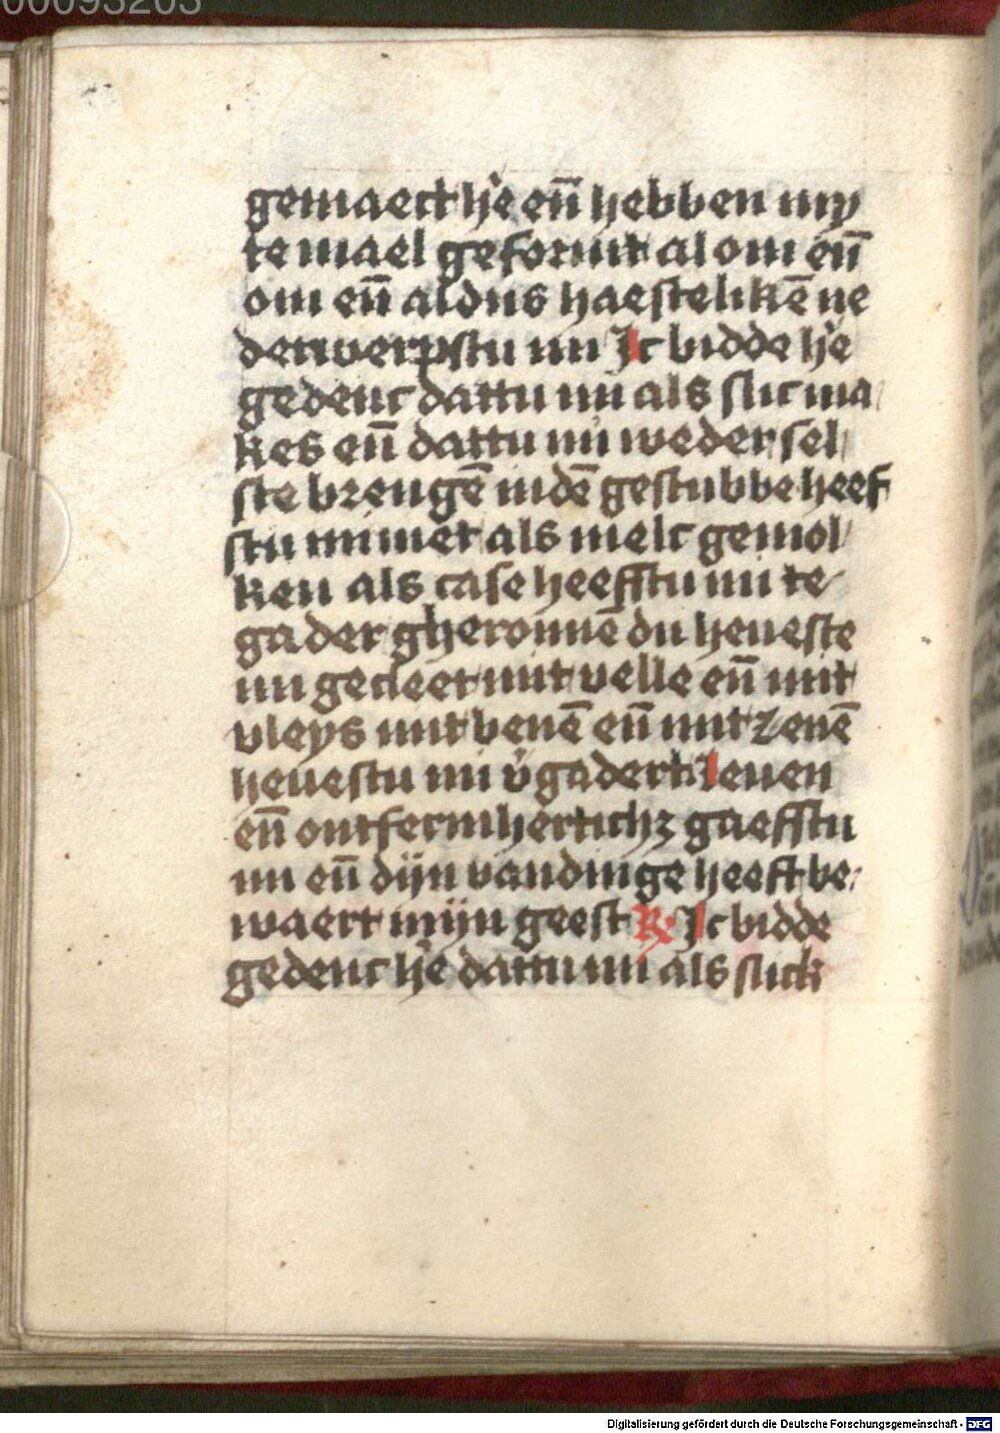 00093203
gemaect hē en̄ hebben my
te mael geformt al om en̄
om en̄ aldus haestelikē ne
derwerpstu mi Ic bidde hē
gedenc dattu mi als slic ma
kes en̄ dattu mi weder sel
ste brengē in dē gestubbe heef
stu mi niet als melc gemol
ken als case heefftu mi te
gader gheronnē du heueste
mi gecleet mit velle en̄ mit
vleys mit benē en̄ mit zenē
heuestu mi v̄gadert Leuen
en̄ ontfermhertichz gaefftu
mi en̄ dijn vandinge heeft be
waert mijn geest R Ic bidde
gedenc hē dattu mi als slick
Digitalisierung gefördert durch die Deutsche Forschungsgemeinschaft - DFG